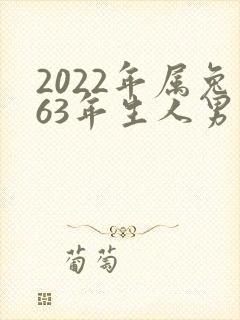 2022年属兔
63年生人男
葡萄